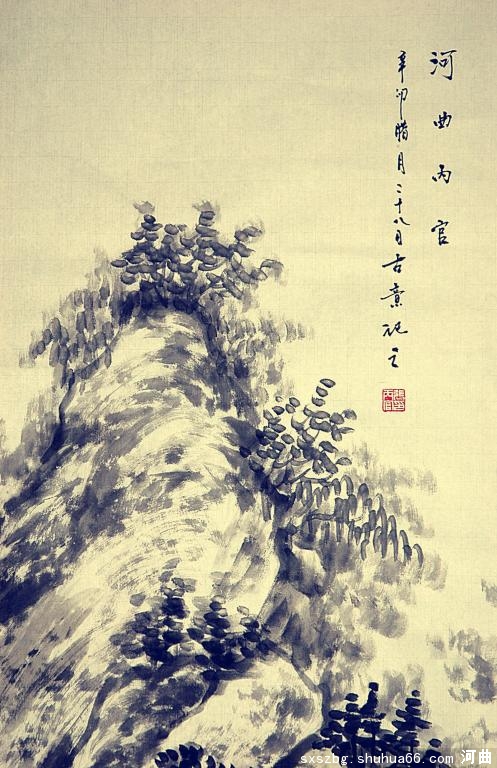 河曲丙官
辛卯腊月二十八日古意记之
sxszbg.shuhua66.com 河曲